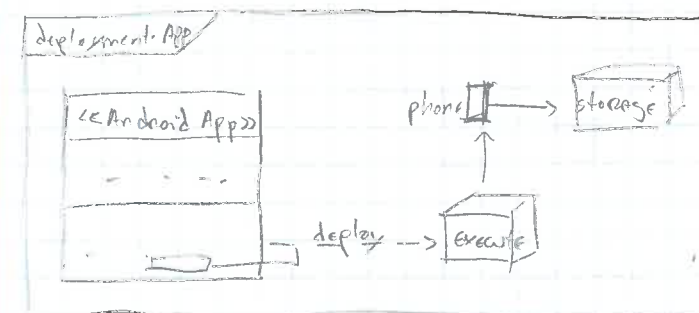 deployment: App
<<Android App>>
phone
storage
deploy
Execute